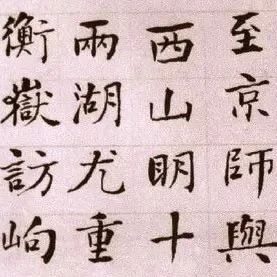 至京師與
西山明十
兩湖尤重
衡嶽訪岣